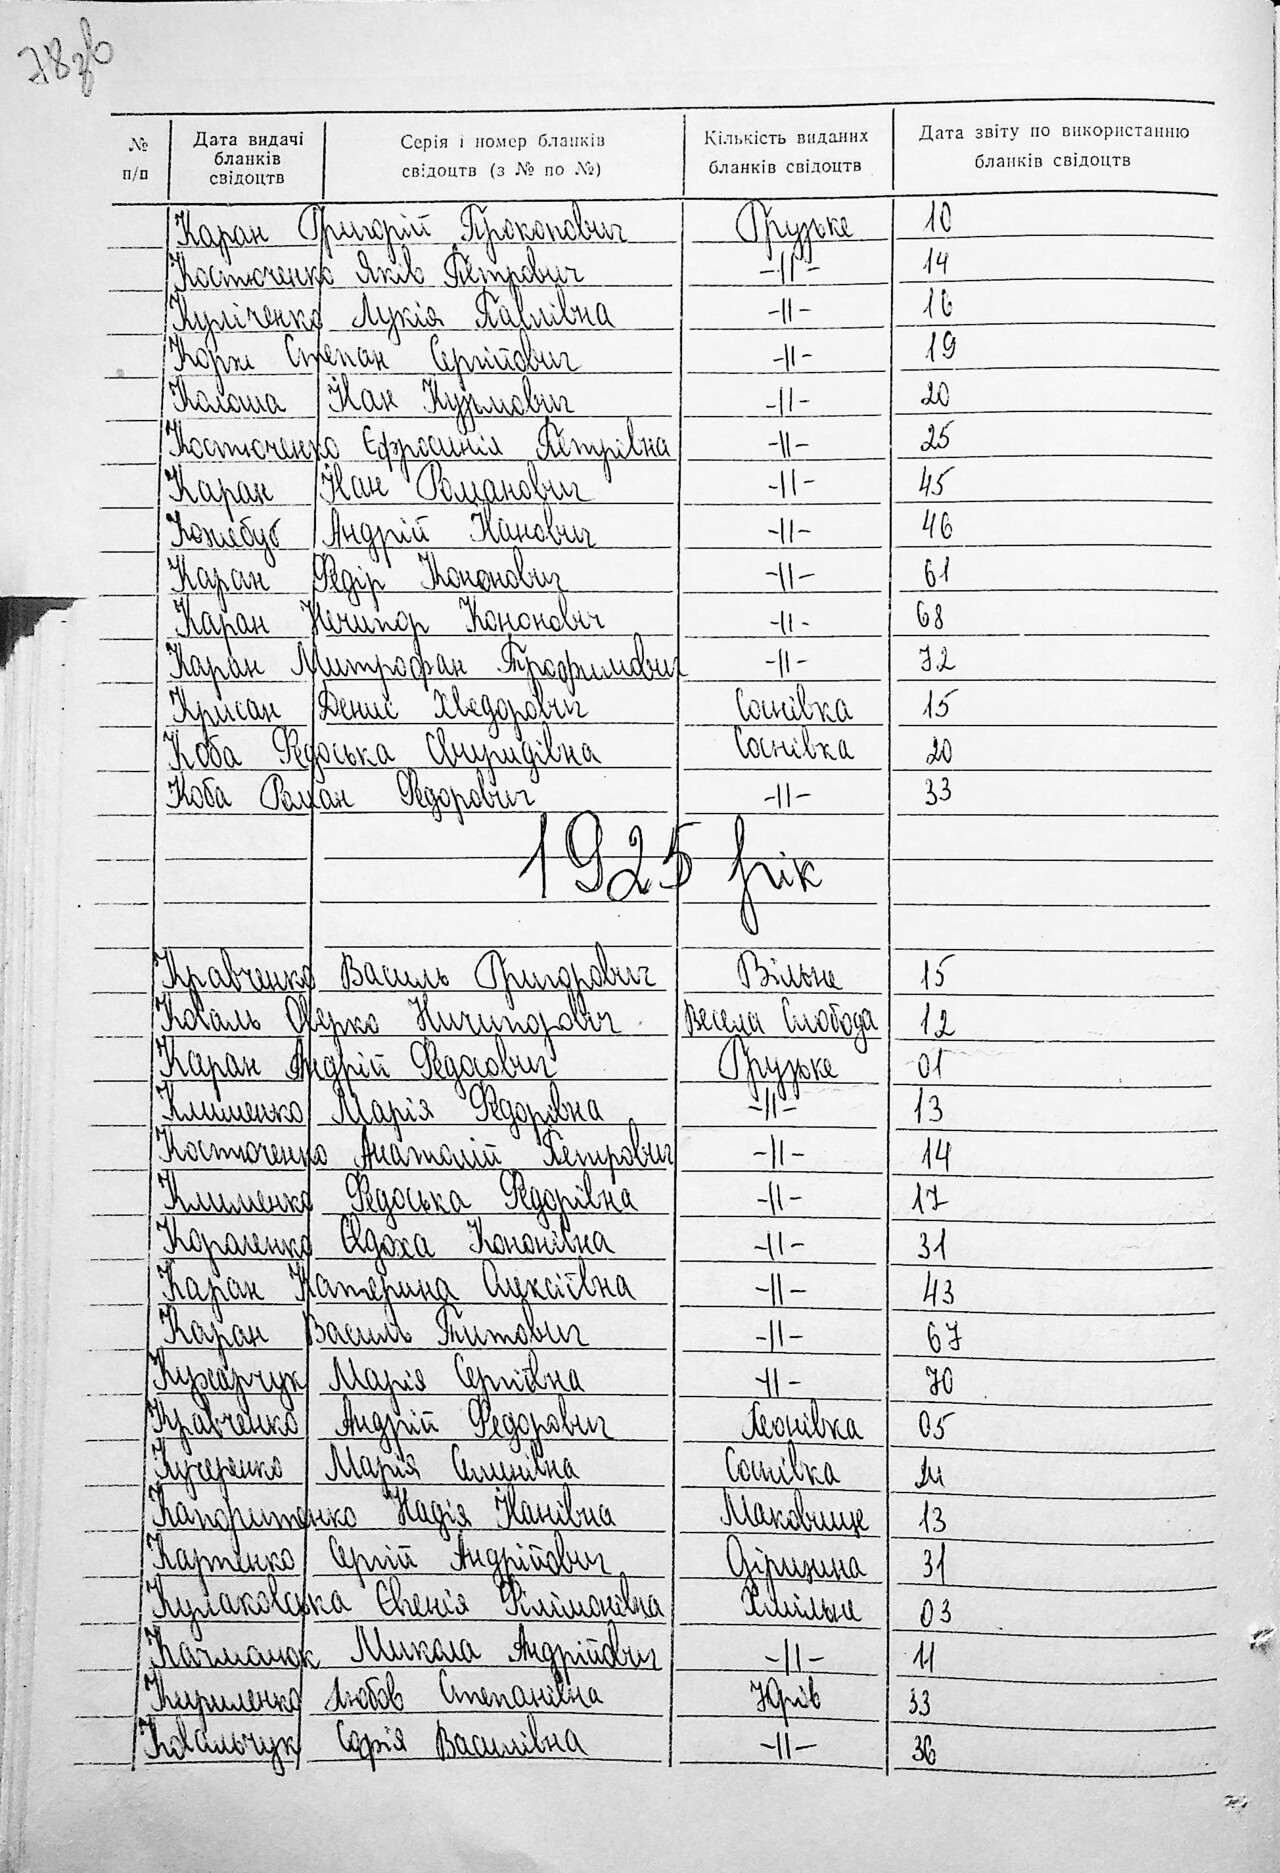 78 зв
№ п/п | Дата видачі бланків свідоцтв | Серія і номер бланків свідоцтв (з № по №) | Кількість виданих бланків свідоцтв | Дата звіту по використанню бланків свідоцтв
Каран Григорій Прокопович Грузьке 10
Костюченко Яків Петрович -||- 14
Куліченко Лукія Павлівна -||- 16
Корж Степан Сергійович -||- 19
Калоша Іван Кузьмович -||- 20
Костюченко Єфросинія Петрівна -||- 25
Каран Іван Романович -||- 45
Кожебуб Андрій Іванович -||- 46
Каран Федір Кононович -||- 61
Каран Ничипор Кононович -||- 68
Каран Митрофан Трофимович -||- 72
Крисан Денис Хведорович Соснівка 15
Коба Федоська Свиридівна Соснівка 20
Коба Роман Федорович -||- 33
1925 рік
Кравченко Василь Григорович Вільне 15
Коваль Оверко Ничипорович Весела Слобода 12
Каран Андрій Федосович Грузьке 01
Клименко Марія Федорівна -||- 13
Костюченко Анатолій Петрович -||- 14
Клименко Федоська Федорівна -||- 17
Короленко Євдоха Кононівна -||- 31
Каран Катерина Олексіївна -||- 43
Каран Василь Титович -||- 67
Кухарчук Марія Сергіївна -||- 70
Кравченко Андрій Федорович Леонівка 05
Кучеренко Марія Соснівка
Надія Іванівна Маковище 13
Карпенко Сергій Андрійович 31
Кулаковська Євгенія Філімонівна Хмільне 03
Качманюк Микола Андрійович -||- 11
Кириленко Любов Степанівна Юрів 33
Ковальчук Софія Василівна -||- 36